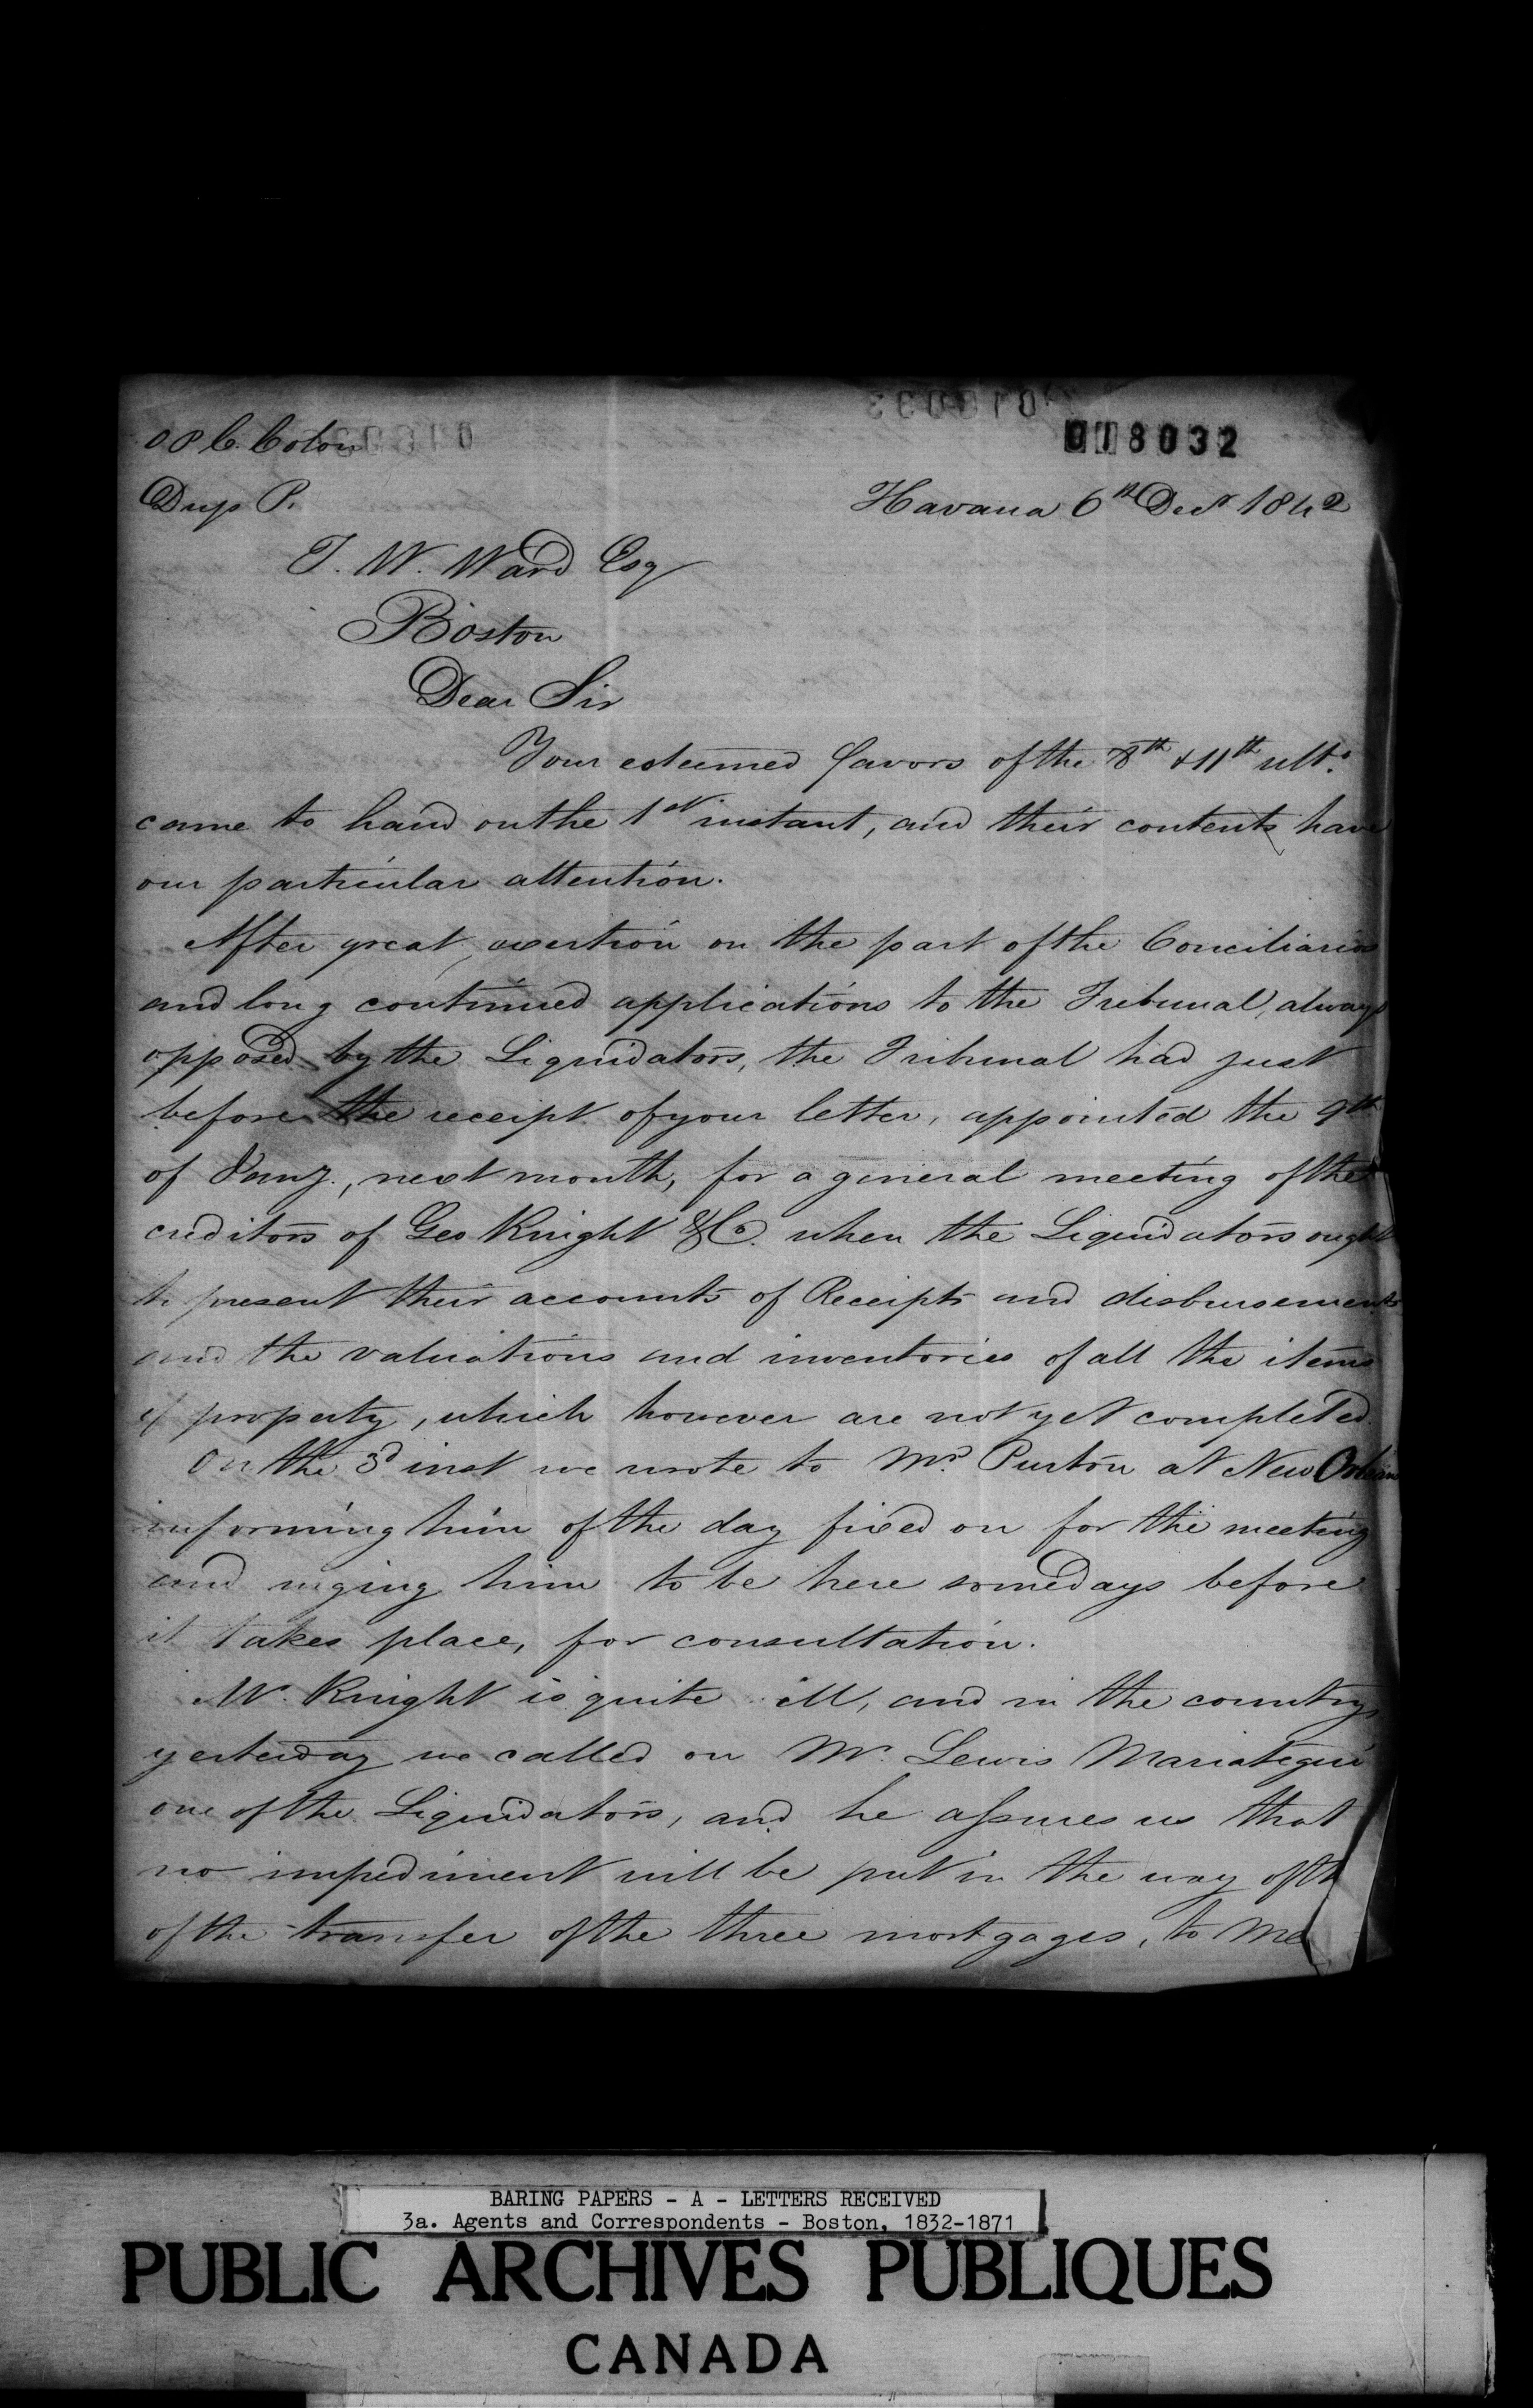 018032
O P C. Colon
Dup P.
Havana 6th Decr 1842
T. W. Ward Esq
Boston
Dear Sir
Your esteemed favors of the 8th & 11th ulto.
came to hand on the 1st instant, and their contents have
our particular attention.
After great exertion on the part of the Conciliarios
and long continued applications to the Tribunal, always
opposed by the Liquidators, the Tribunal had just
before the receipt of your letter, appointed the 9th
of Jany., next month, for a general meeting of the
creditors of Geo Knight & Co. when the Liquidators ought
to present their accounts of Receipts and disbursements
and the valuations and inventories of all the items
of property, which however are not yet completed.
On the 3d inst we wrote to Mr. Purton at New Orleans
informing him of the day fixed on for the meeting
and urging him to be here some days before
it takes place, for consultation.
Mr. Knight is quite ill, and in the country,
yesterday we called on Mr. Lewis Mariategui
one of the Liquidators, and he assures us that
no impediment will be put in the way of th
of the transfer of the three mortgages, to Me
BARING PAPERS - A - LETTERS RECEIVED
3a. Agents and Correspondents - Boston, 1832-1871
PUBLIC ARCHIVES PUBLIQUES
CANADA